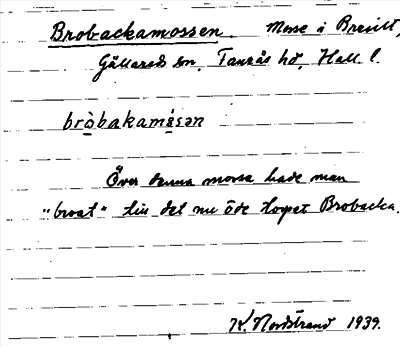 Brobackamossen. Mosse i Bresilt,
Gällareds sn, Faurås hd, Hall. l.
bròbakamósən
Över denna mosse hade man
"broat" till det nu öde torpet Brobacka.
K. Nordstrand 1939.